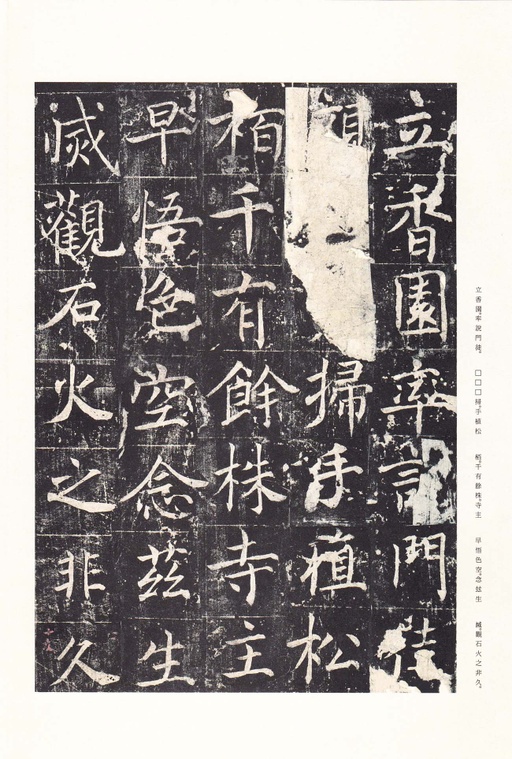 立香園率說門徒
掃手植松
栢千有餘株寺主
早悟色空念茲生
滅觀石火之非久
立香園率說門徒。 □□□掃手植松 栢千有餘株寺主 早悟色空念玆生 滅觀石火之非久。